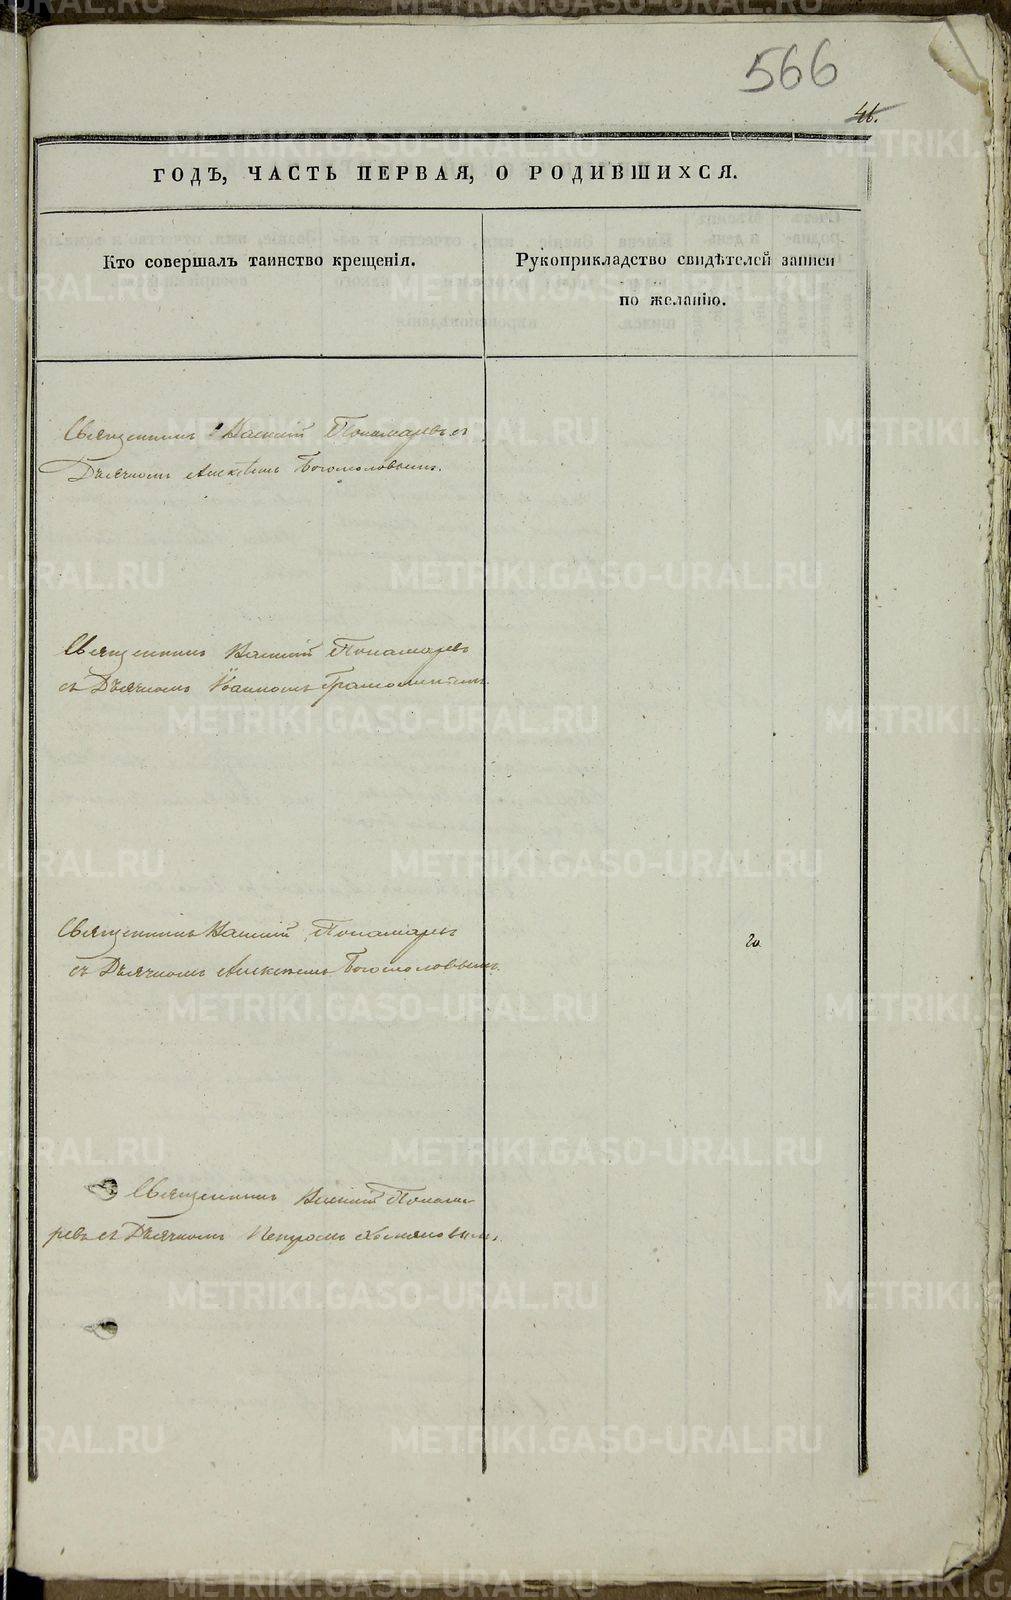 566
46.
ГОДЪ, ЧАСТЬ ПЕРВАЯ, О РОДИВШИХСЯ.
Кто совершалъ таинство крещенія.
Рукоприкладство свидѣтелей записи
по желанію.
Священникъ Василій Пономаревъ съ
Дьячкомъ Алексѣемъ Богомоловымъ.
Священникъ Василій Пономаревъ
съ Дьячкомъ Іоанномъ
Священникъ Василій Пономаревъ
съ Дьячкомъ Алексѣемъ Богомоловымъ.
Священникъ Василій Понома
ревъ съ Дьячкомъ Петромъ
METRIKI.GASO-URAL.RU